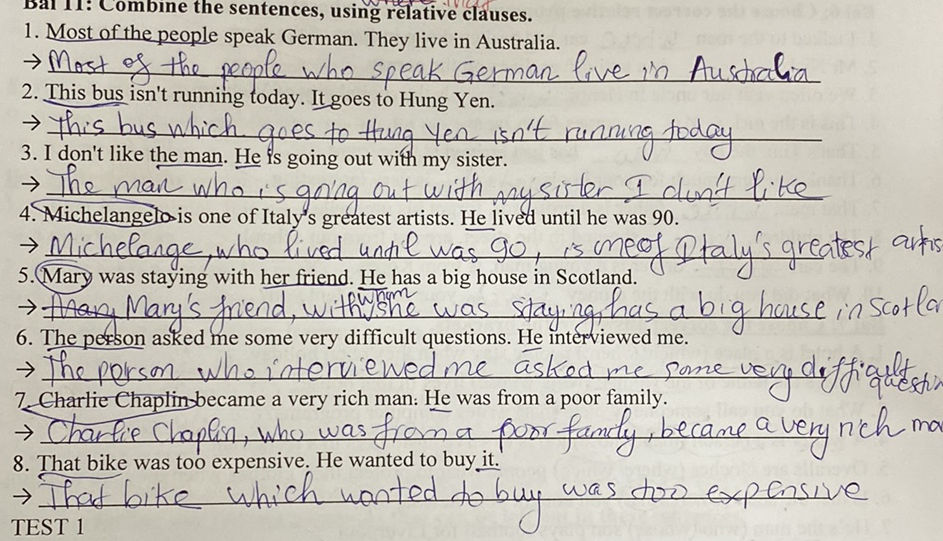 Bài 11: Combine the sentences, using relative clauses.
1. Most of the people speak German. They live in Australia.
→ Most of the people who speak German live in Australia
2. This bus isn't running today. It goes to Hung Yen.
→ This bus which goes to Hung Yen isn't running today
3. I don't like the man. He is going out with my sister.
→ The man who is going out with my sister I don't like
4. Michelangelo is one of Italy's greatest artists. He lived until he was 90.
→ Michelange, who lived until was 90, is one of Italy's greatest artis
5. Mary was staying with her friend. He has a big house in Scotland.
whom
→ Mary Mary's friend, with she was staying, has a big house in Scotlan
6. The person asked me some very difficult questions. He interviewed me.
→ The person who interviewed me asked me some very difficult
questin
7. Charlie Chaplin became a very rich man. He was from a poor family.
→ Charlie Chaplin, who was from a poor family, became a very rich ma
8. That bike was too expensive. He wanted to buy it.
→ That bike which wanted to buy was too expensive
TEST 1